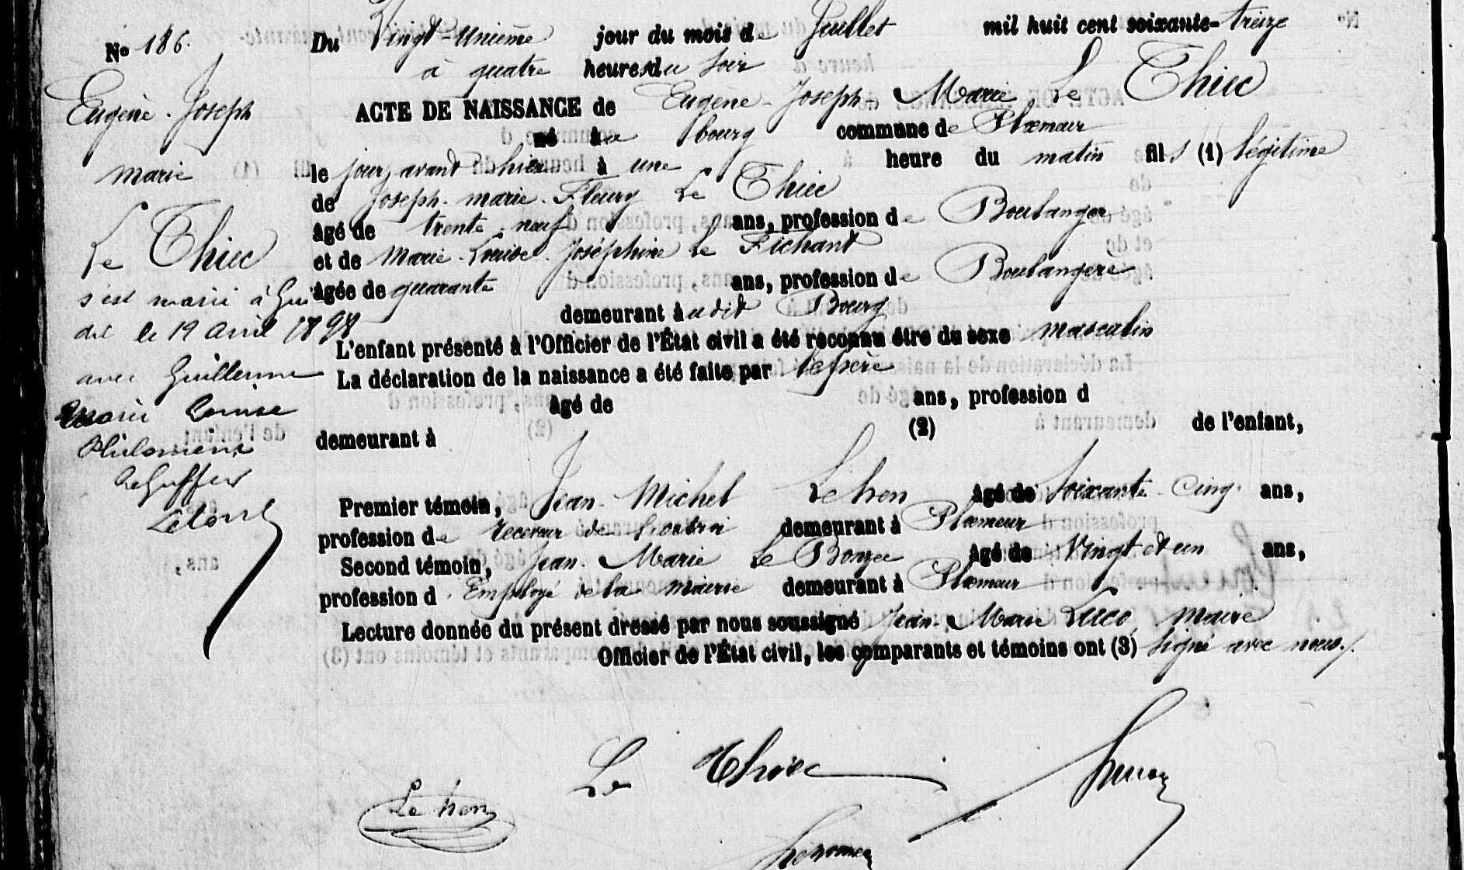 No 186.
Eugène Joseph
marie
Le Thiec
s'est marié à Gui
del le 19 avril 1898
avec Guillerme
Marie Louise
Philomène
Du Vingt-Unième jour du mois de Juillet mil huit cent soixante-treize
à quatre heures du soir
ACTE DE NAISSANCE de Eugène Joseph Marie Le Thiec
né au bourg commune de Plœmeur
le jour avant hier à une heure du matin fils (1) légitime
de Joseph marie Fleury Le Thiec
âgé de trente neuf ans, profession de Boulanger
et de Marie Louise Joséphine Le Fichant
âgée de quarante ans, profession de Boulangère
demeurant à udit Bourg
L'enfant présenté à l'Officier de l'État civil a été reconnu être du sexe masculin
La déclaration de la naissance a été faite par le père
âgé de ans, profession d
demeurant à (2) de l'enfant,
Premier témoin, Jean Michel Le hen âgé de Soixante Cinq ans,
profession de receveur de demeurant à Plœmeur
Second témoin, Jean Marie Le âgé de Vingt et un ans,
profession d Employé de la mairie demeurant à Plœmeur
Lecture donnée du présent dressé par nous soussigné Jean Marie Luco maire
Officier de l'État civil, les comparants et témoins ont (3) signé avec nous.
Le Thiec
Le hen